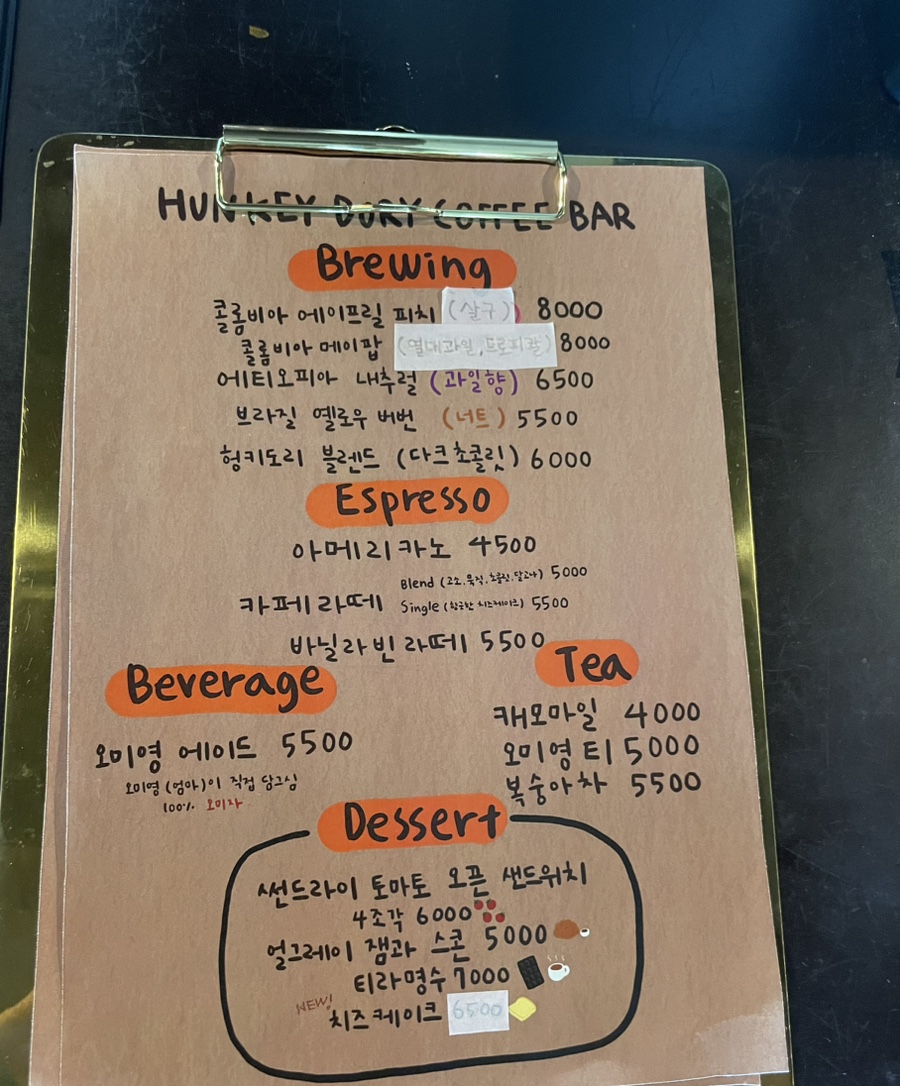 HUNKEY DORY COFFEE BAR
Brewing
콜롬비아 에이프릴 피치 (살구) 8000
콜롬비아 메이팝 (열대과일, 트로피칼) 8000
에티오피아 내추럴 (과일향) 6500
브라질 옐로우 버번 (너트) 5500
헝키도리 블렌드 (다크초콜릿) 6000
Espresso
아메리카노 4500
카페라떼
Blend (고소, 묵직, 초콜릿, 달고나) 5000
Single (향긋한 치즈케이크) 5500
바닐라빈라떼 5500
Beverage
오미영 에이드 5500
오미영 (엄마)이 직접 담그심
100% 오미자
Tea
캐모마일 4000
오미영티 5000
복숭아차 5500
Dessert
썬드라이 토마토 오픈 샌드위치
4조각 6000
얼그레이 잼과 스콘 5000
티라명수 7000
NEW! 치즈케이크 6500